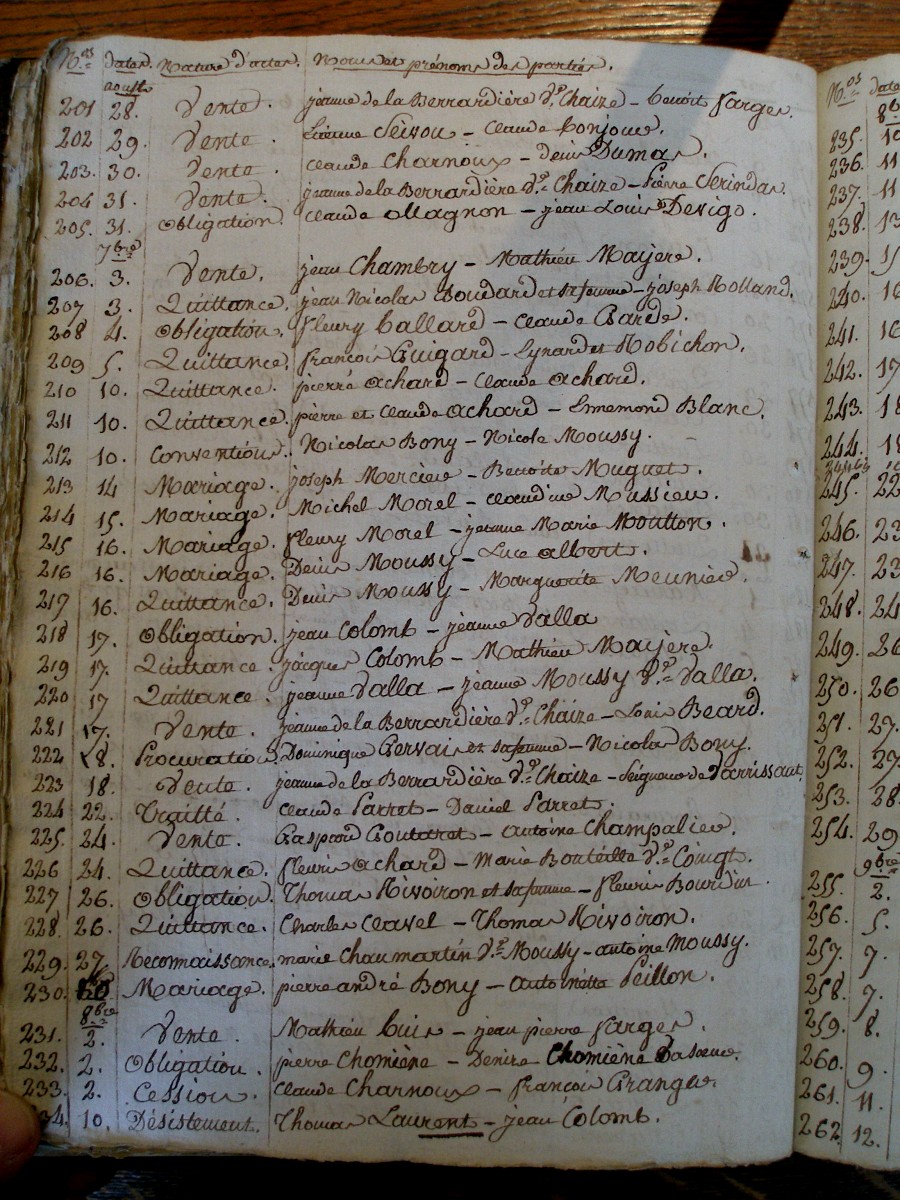 N.os dates. Nature d'actes. Noms et prénoms des parties.
aoust
201 28. Vente. jeanne de la Berrardière v.e Chaize - benoit farges.
202 29. Vente. Seivou - Claude bonjour.
203. 30. Vente. Claude Charnoux - denis Dumas.
204 31. Vente. jeanne de la Berrardière v.e Chaize - Pierre Serindas.
205. 31. Obligation. Claude Magnon - jean Louis Devigo.
7bre
206. 3. Vente. jean Chambry - Mathieu Majere.
207 3. Quittance. jean Nicolas Goudard et sa femme - joseph Rolland.
208 4. Obligation. fleury ballard - Claude Barde.
209 5. Quittance. françois Guigard - Eynard et Robichon.
210 10. Quittance. pierre achard - Claude achard.
211 10. Quittance. pierre et Claude achard - Ennemond Blanc.
212 10. Convention. Nicolas Bony - Nicole Moussy.
213 14 Mariage. joseph Mercier - Benoite Muguet.
214 15. Mariage. Michel Morel - claudine Mussieu.
215 16. Mariage. fleury Morel - jeanne Marie Moutton.
216 16. Mariage. Denis Moussy - Luce albert.
217 16. Quittance. Denis Moussy - Marguerite Meunier.
218 17. Obligation. jean Colomb - jeanne Valla
219 17. Quittance jacques Colomb - Mathieu Majere.
220 17 Quittance. jeanne Valla - jeanne Moussy v.e Valla.
221 17. Vente. jeanne de la Berrardière v.e Chaize - Louis Beard.
222 18. Procuration. Dominique Gervais et sa femme - Nicolas Bony.
223 18. Vente. jeanne de la Berrardière v.e Chaize - Seigneur de Varrissant.
224 22. Traitté. Claude Parret - Daniel Parret.
225. 24. Vente. Gaspard Goutarat - antoine Champalier.
226 24. Quittance. fleurie achard - Marie Bouteille v.e Coingt.
227 26. Obligation. Thomas Rivoiron et sa femme - fleurie Bourdin.
228. 26. Quittance. Charles Clavel - Thomas Rivoiron.
229. 27. Reconnaissance. marie Chaumartin v.e Moussy - antoine Moussy.
230. Mariage. pierre andré Bony - antoinette Peillon.
8bre
231. 2. Vente. Mathieu - jean pierre farges.
232. 2. Obligation. pierre Chomiène - Denise Chomiène sa soeur.
233. 2. Cession. Claude Charnoux - françois Granger.
234. 10. Désistement. Thomas Laurent - jean Colomb.
N.os dates
8b
235. 10
236. 11
237. 11
238. 13
239. 15
240. 16
241. 16
242. 17
243. 18
244. 18
245. 22
246. 23
247. 23
248. 24
249. 26
250. 26
251. 27.
252. 27
253. 28.
254. 29
9bre
255. 2.
256. 5.
257. 7.
258. 7.
259. 8.
260. 9.
261. 11.
262. 12.